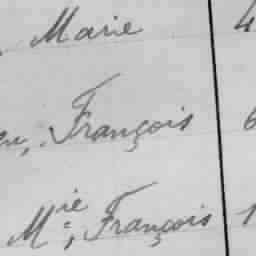 Marie 4
, François 6
Mie, François 1